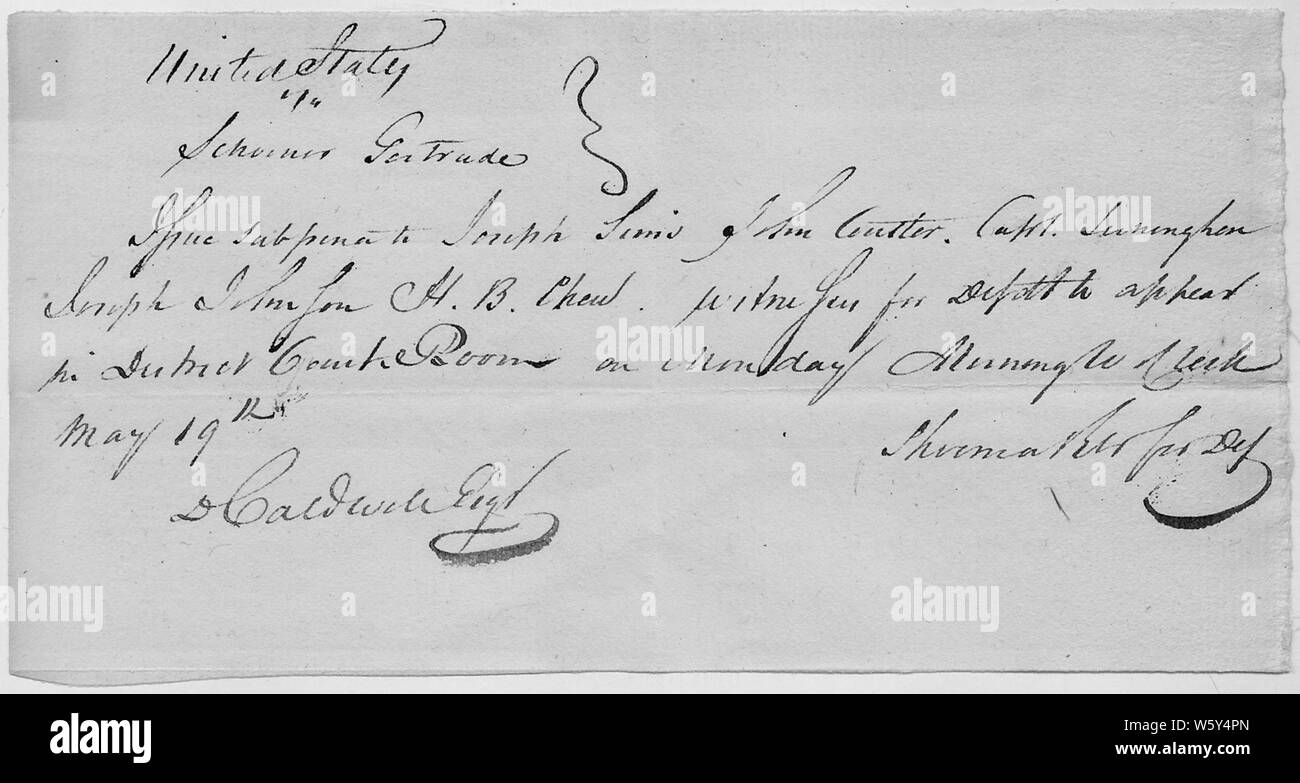 United States
vs
Schooner Gertrude
Issue subpena to Joseph Sims John Coulter. Capt.
Joseph Johnson H. B. Chew. witnesses for Defdt to appear
in District Court Room on Monday Morning 10 oClock
May 19th
Shoemaker for Def
D Caldwell Esqr
alamy
Image ID: W5Y4PN
www.alamy.com